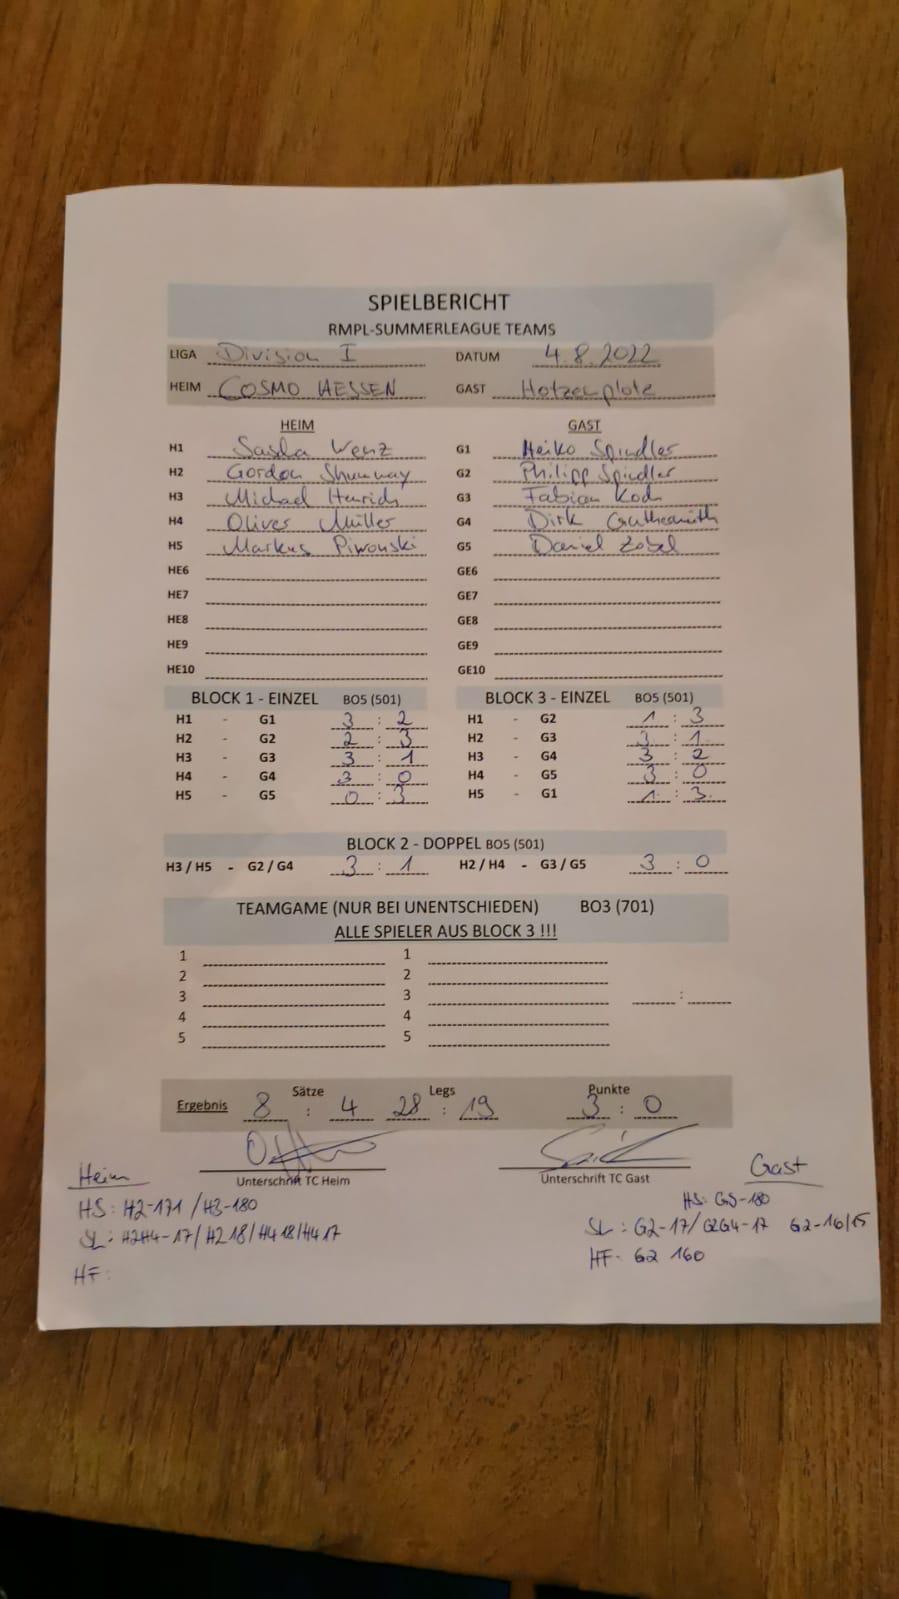 SPIELBERICHT
RMPL-SUMMERLEAGUE TEAMS
LIGA Division I DATUM 4.8.2022
HEIM COSMO HESSEN GAST Hotzenplotz
HEIM GAST
H1 Sascha Wenz G1 Heiko Spindler
H2 Gordon Shumway G2 Philipp Spindler
H3 Michael Henrich G3 Fabian Koch
H4 Oliver Müller G4 Dirk
H5 Markus Piwonski G5 Daniel Zobel
HE6 GE6
HE7 GE7
HE8 GE8
HE9 GE9
HE10 GE10
BLOCK 1 - EINZEL BO5 (501) BLOCK 3 - EINZEL BO5 (501)
H1 - G1 3 : 2 H1 - G2 1 : 3
H2 - G2 2 : 3 H2 - G3 3 : 1
H3 - G3 3 : 1 H3 - G4 3 : 2
H4 - G4 3 : 0 H4 - G5 3 : 0
H5 - G5 0 : 3 H5 - G1 1 : 3
BLOCK 2 - DOPPEL BO5 (501)
H3 / H5 - G2 / G4 3 : 1 H2 / H4 - G3 / G5 3 : 0
TEAMGAME (NUR BEI UNENTSCHIEDEN) BO3 (701)
ALLE SPIELER AUS BLOCK 3 !!!
1 1
2 2
3 3 :
4 4
5 5
Sätze Legs Punkte
Ergebnis 8 : 4 28 : 19 3 : 0
Unterschrift TC Heim Unterschrift TC Gast
Heim Gast
HS: H2-171 / H3-180 HS: G5-180
SL: H2H4-17/ H2 18/ H4 18/ H4 17 SL: G2-17/ G2G4-17 G2-16/15
HF: HF- G2 160